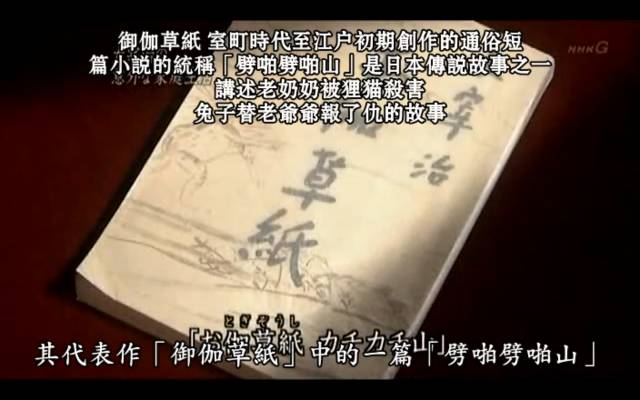 御伽草紙 室町時代至江户初期創作的通俗短
篇小説的統稱「劈啪劈啪山」是日本傳説故事之一
講述老奶奶被狸猫殺害
兔子替老爺爺報了仇的故事
NHK G
意外な家庭生活
宰治
草紙
とぎぞうし
「お伽草紙 カチカチ山」
其代表作「御伽草紙」中的一篇「劈啪劈啪山」